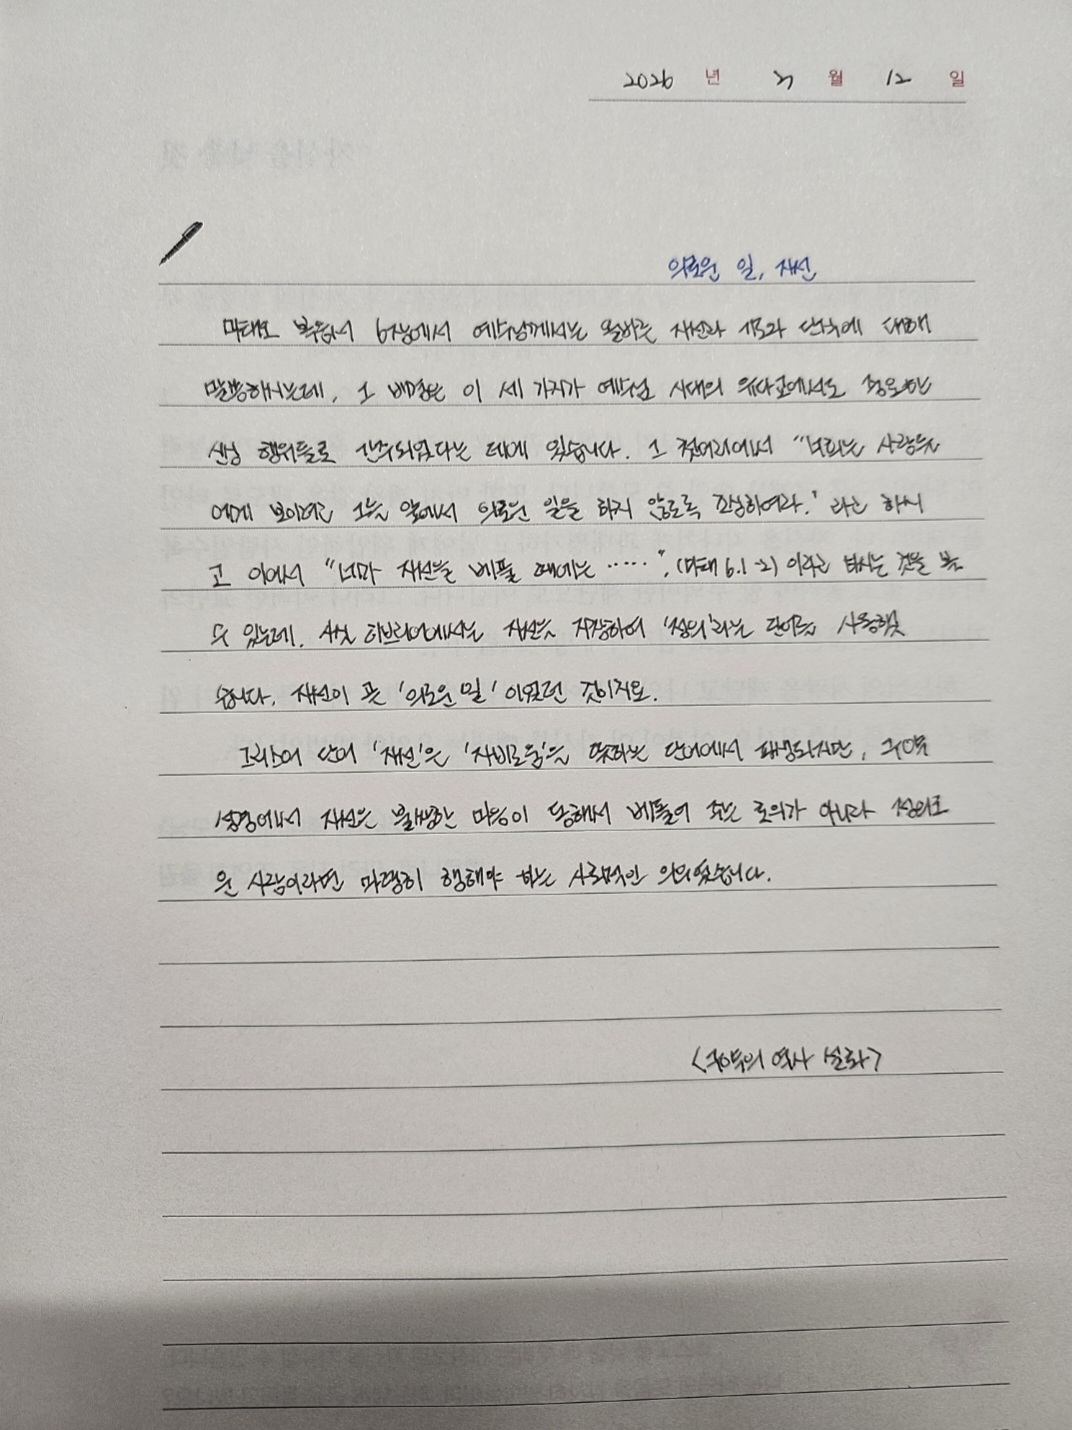 2026 년 2월 12 일
의로운 일, 자선
마태오 복음서 6장에서 예수님께서는 올바른 자선과 기도와 단식에 대해
말씀하시는데, 그 배경은 이 세 가지가 예수님 시대의 유다교에서도 중요한
신심 행위들로 간주되었다는 데에 있습니다. 그 첫머리에서 "너희는 사람들
에게 보이려고 그들 앞에서 의로운 일을 하지 않도록 조심하여라." 라고 하시
고 이어서 "네가 자선을 베풀 때에는 ·····", (마태 6.1-2) 이라고 하시는 것을 볼
수 있는데, 사실 히브리어에서는 자선을 지칭하여 '정의'라는 단어를 사용했
습니다. 자선이 곧 '의로운 일' 이었던 것이지요.
그리스어 단어 '자선'은 '자비로움'을 뜻하는 단어에서 파생되지만, 구약
성경에서 자선은 불쌍한 마음이 동해서 베풀어 주는 호의가 아니라 정의로
운 사람이라면 마땅히 행해야 하는 사회적인 의무였습니다.
<구약의 역사 설화>